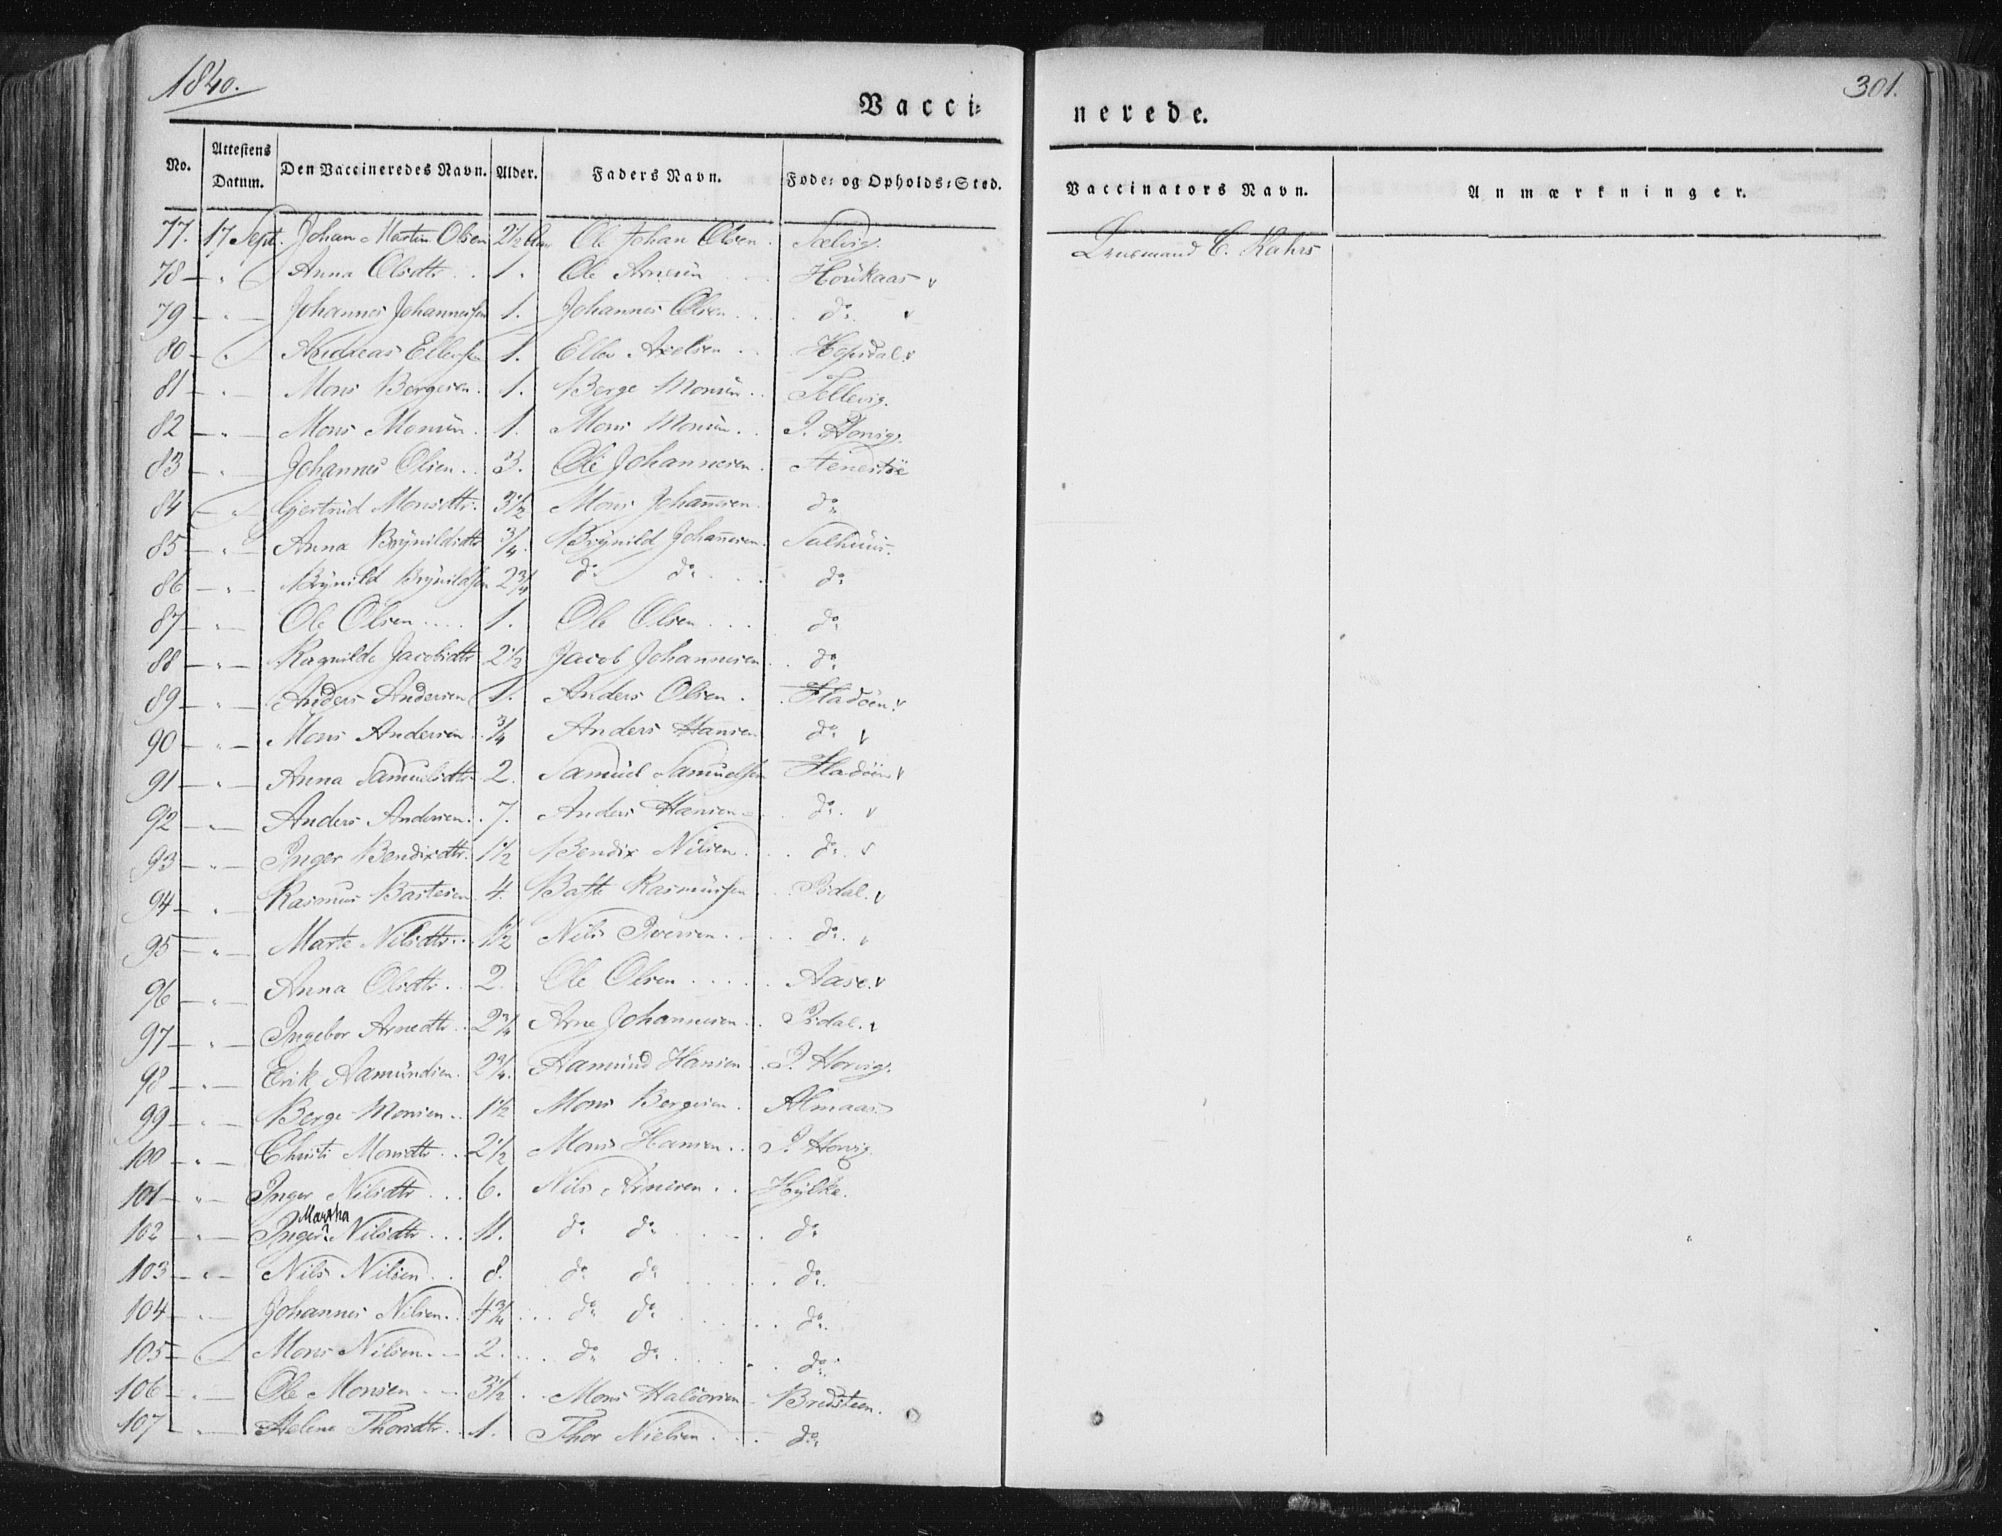 1840.
301.
Vacci= nerede.
No. Attestens Datum. Den Vaccineredes Navn. Alder. Faders Navn. Føde= og Opholds=Sted. Vaccinators Navn. Anmærkninger.
77. 17 Sept. Johan Martin Olsen 2½ Ole Johan Olsen Sælvig. C. Kahrs
78 — " Anna Olsdtr. 1. Ole Arnesen Houkaas v
79 — " — Johannes Johannessen 1. Johannes Olsen do. v
80 — " Andreas Ellevsen 1. Ellev Axelsen Hopsdal. v
81 — " — Mons Bergesen. 1. Berge Monsen Tellevig.
82 — " — Mons Monsen. 1. Mons Monsen. I. Horvig.
83 — " — Johannes Olsen. 3. Ole Johannesen.
84 " Gjertrud Monsdtr. 3½ Mons Johannesen. do
85 — " — Anna Brynildsdtr ¾. Brynild Johannesen. Salhuus.
86 — " — Brynild Brynildsen 2¾ do do do
87 — " — Ole Olsen 1. Ole Olsen do
88 — " — Ragnilde Jacobsdtr 2½ Jacob Johannesen do
89 — " — Anders Andersen 1. Anders Olsen. Fladøen. v
90 — " — Mons Andersen ¾ Anders Hansen do v
91 — " — Anna Samuelsdtr. 2. Samuel Samuelsen Fladøen v
92 — " — Anders Andersen. 7. Anders Hansen do. v
93 — " — Inger Bendixdtr. 1½ Bendix Nilsen. do. v
94 — " — Rasmus Bastesen 4. Baste Rasmussen Isdal. v
95 — " — Marte Nilsdtr. 1½ Nils Iversen do. v
96 — " — Anna Olsdtr. 2. Ole Olsen Aase. v
97 — " — Ingebor Arnedtr. 2¾ Arne Johannesen. Isdal. v
98 — " — Erik Aamundsen. 2¾. Aamund Hansen I. Horvig.
99 — " — Berge Monsen. 1½ Mons Bergesen. Almaas
100 — " — Christi Monsdtr. 2½ Mons Hansen I. Horvig.
101 — " — Inger Nilsdtr 6. Nils Arnesen Hylka.
Martha
102 — " — Inger? Nilsdtr 11. do do do
103 — " — Nils Nilsen 8. do do do.
104 — " — Johannes Nilsen. 4¾ do do do.
105 — Mons Nilsen. 2. do do do.
106 — " — Ole Monsen 3½ Mons Haldorsen Bredsteen.
107 — " — Helene Thorsdtr. 1. Thor Nielsen do.